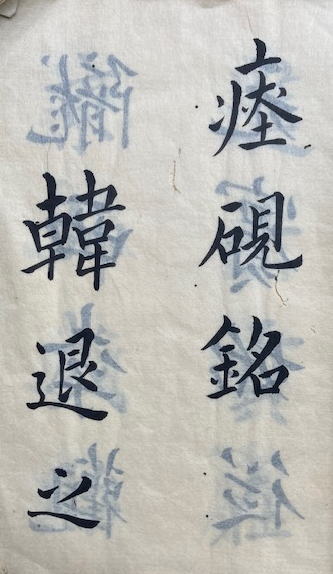 瘞硯銘
韓退之